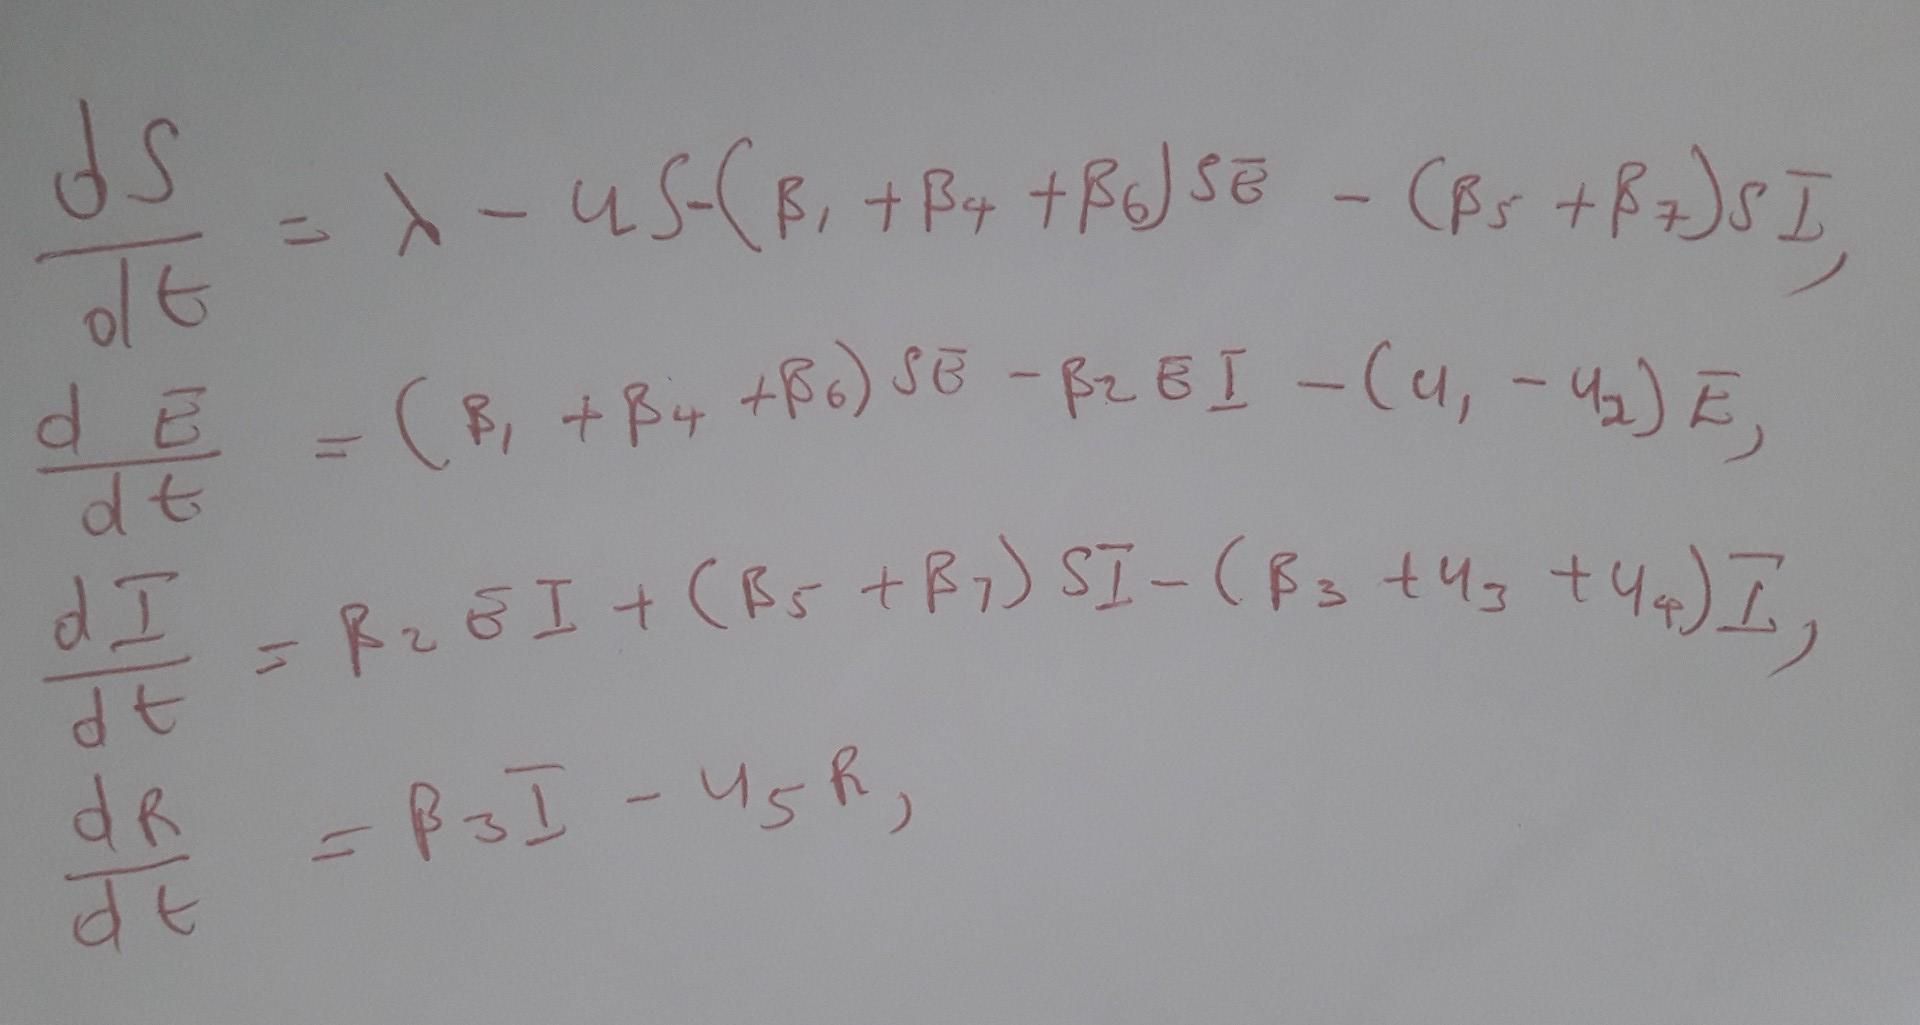 dS/dt = λ - uS-(β₁ + β₄ + β₆)SE - (β₅ + β₇)SI,
dE/dt = (β₁ + β₄ + β₆)SE - β₂EI - (u₁ - u₂)E,
dI/dt = β₂EI + (β₅ + β₇)SI - (β₃ + u₃ + u₄)I,
dR/dt = β₃I - u₅R,